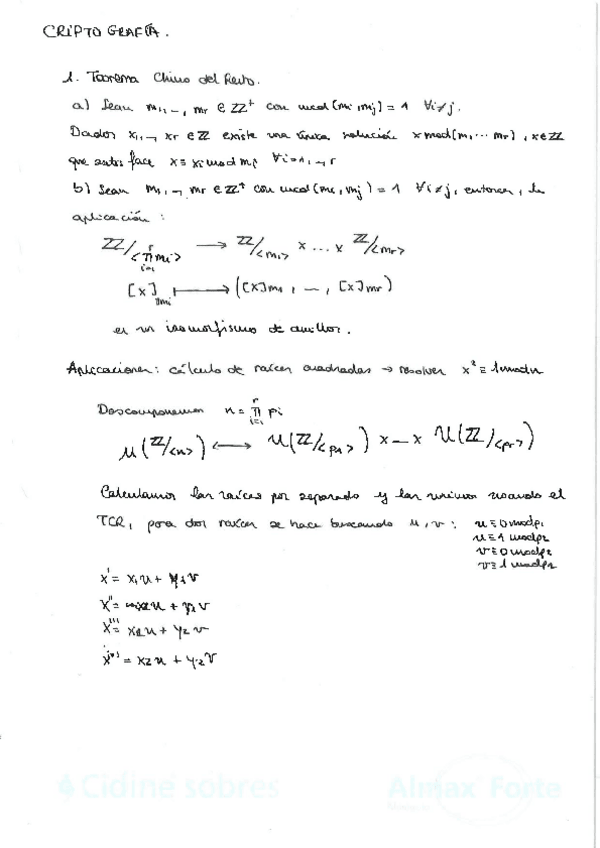 CRIPTOGRAFÍA.
1. Teorema Chino del Resto.
a) Sean m1, –, mr ∈ ZZ⁺ con mcd(mi, mj) = 1 ∀i≠j.
Dados x1, –, xr ∈ ZZ existe una única solución x mod(m1 ··· mr), x∈ZZ
que satisface x ≡ xi mod mi ∀i=1, –, r
b) Sean m1, –, mr ∈ ZZ⁺ con mcd(mi, mj) = 1 ∀i≠j, entonces, la
aplicación:
ZZ/<∏_{i=1}^{r} mi> → ZZ/<m1> x ... x ZZ/<mr>
[x]_{∏mi} ↦ ([x]m1, –, [x]mr)
es un isomorfismo de anillos.
Aplicaciones: cálculo de raíces cuadradas → resolver x² ≡ 1 mod n
Descomponemos n = ∏_{i=1}^{r} pi
U(ZZ/<n>) ↔ U(ZZ/<p1>) x – x U(ZZ/<pr>)
Calculamos las raíces por separado y las unimos usando el
TCR, para dos raíces se hace buscando u, v: u ≡ 0 mod p1
u ≡ 1 mod p2
v ≡ 0 mod p2
v ≡ 1 mod p1
x' = x1u + y1v
x'' = x2u + y1v
x''' = x2u + y2v
x'''' = x2u + y2v
Cidine sobres
Almax Forte